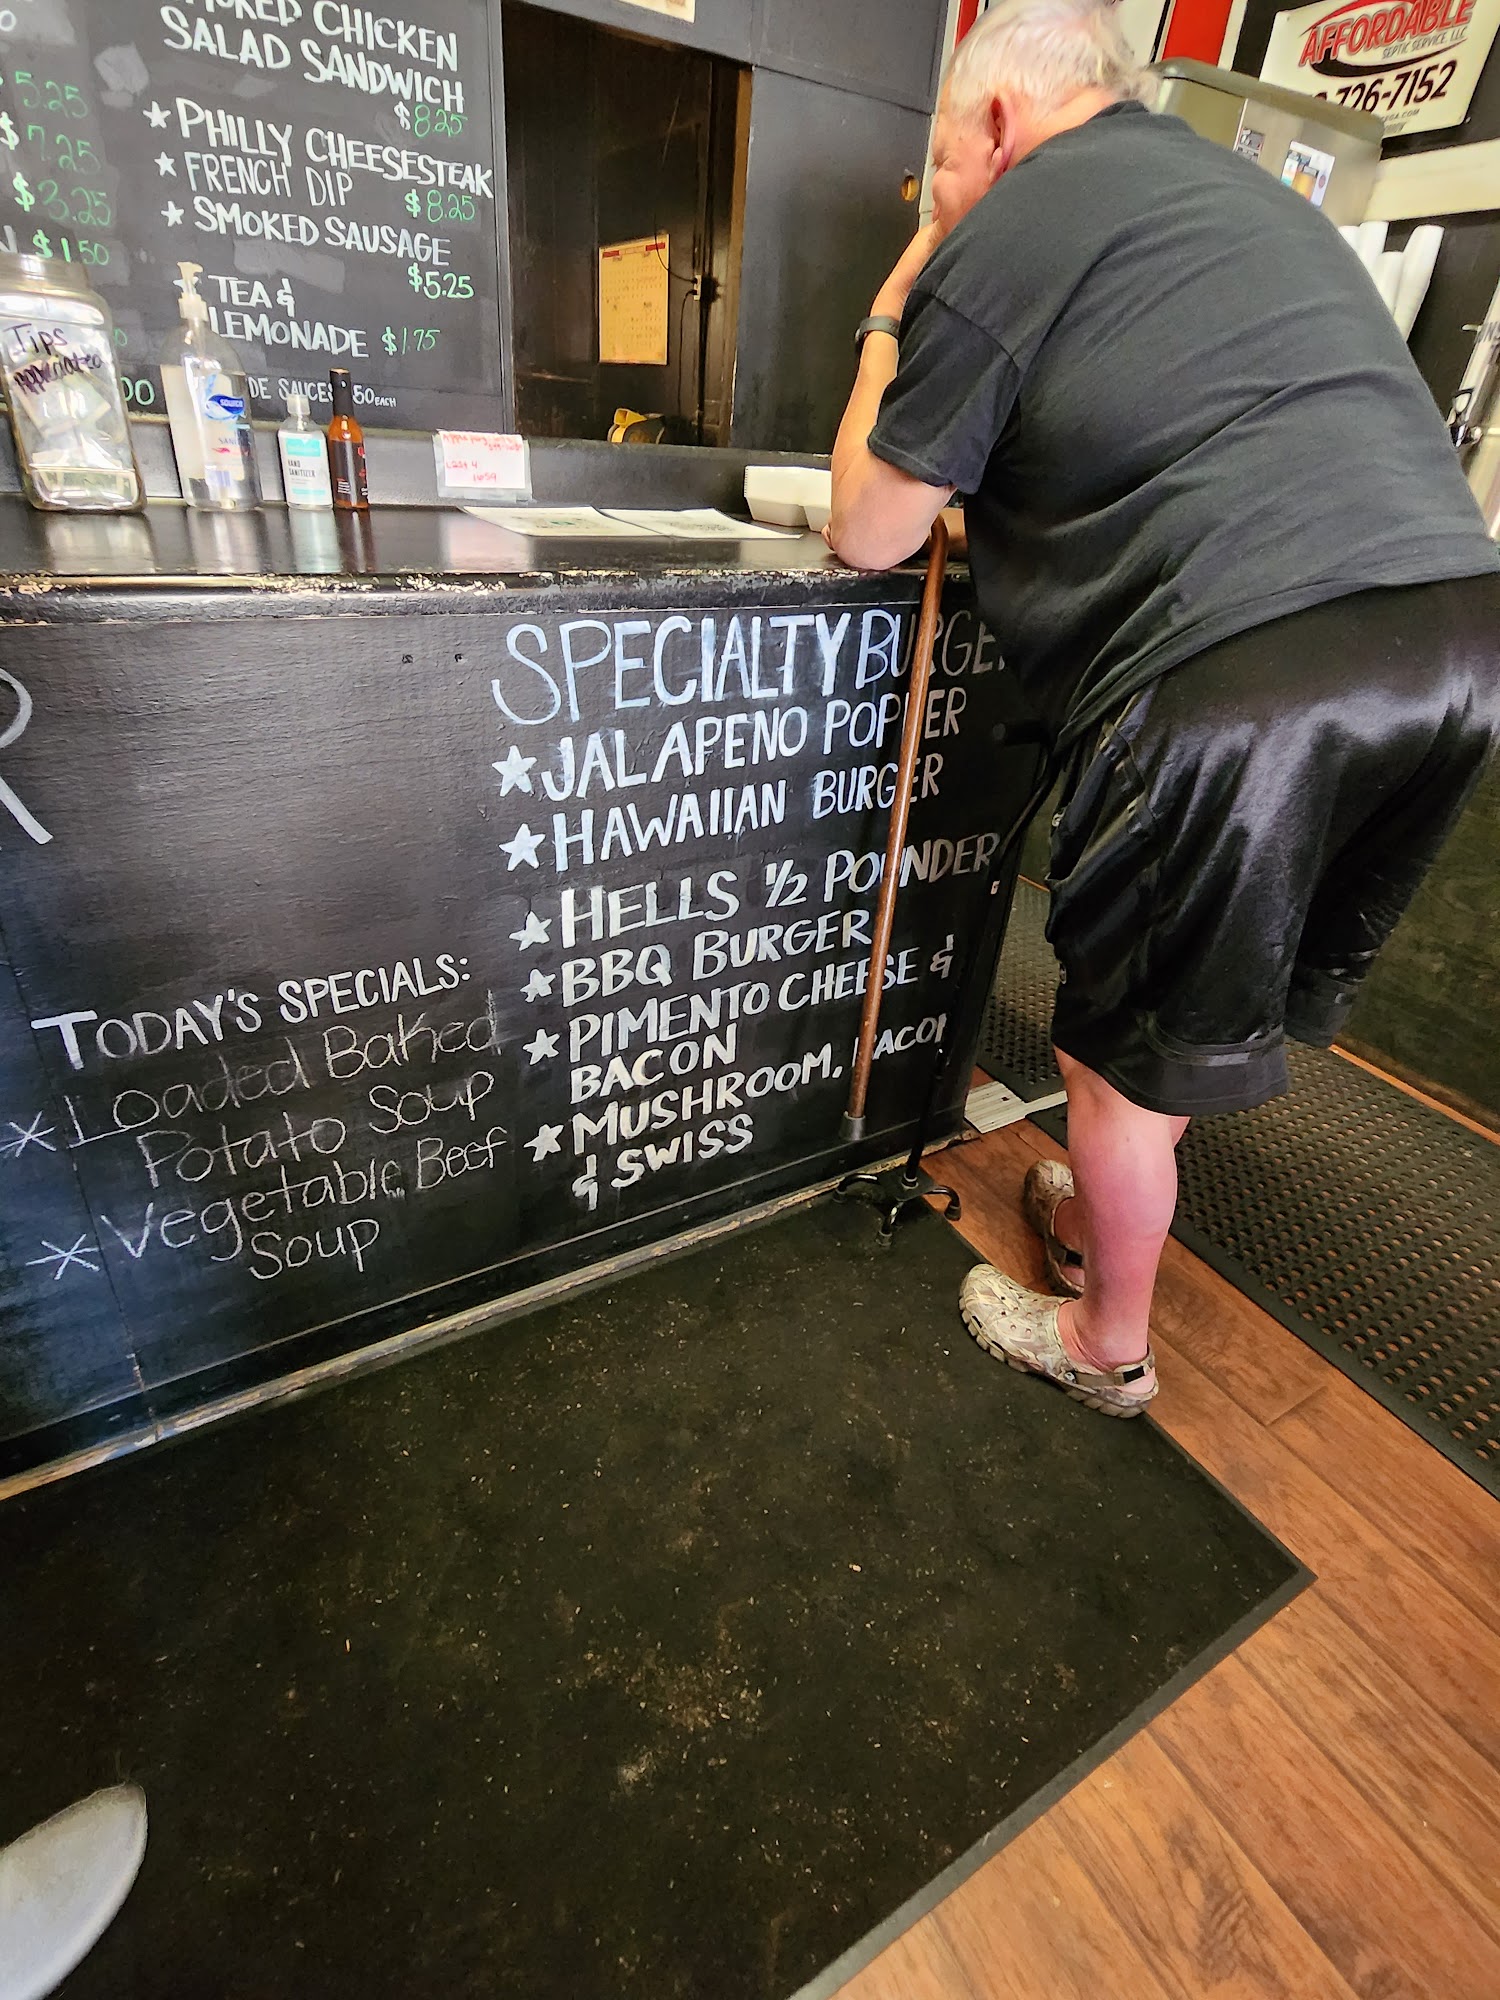 SMOKED CHICKEN
SALAD SANDWICH
$8.25
PHILLY CHEESESTEAK
FRENCH DIP $8.25
SMOKED SAUSAGE
$5.25
TEA &
LEMONADE $1.75
DE SAUCES .50 EACH
5.25
$7.25
$3.25
N $1.50
00
Tips
Appreciated
HAND
SANITIZER
Last 4
AFFORDABLE
SEPTIC SERVICE, LLC
726-7152
SPECIALTY BURGE
JALAPENO POPPER
HAWAIIAN BURGER
HELLS 1/2 POUNDER
BBQ BURGER
PIMENTO CHEESE &
BACON
MUSHROOM, BACON
& SWISS
R
TODAY'S SPECIALS:
Loaded Baked
Potato Soup
Vegetable Beef
Soup